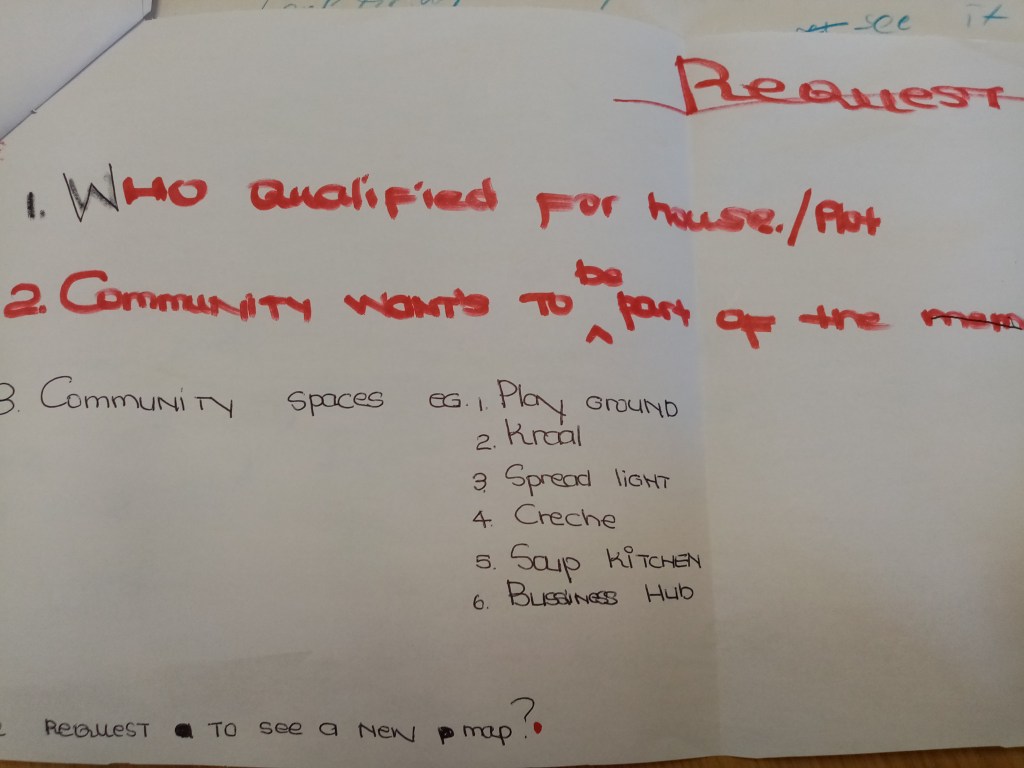 see it
Request
1. WHO qualified for house./Plot
2. Community wants to be part of the
3. Community spaces eg. 1. Play ground
2. Kraal
3. Spread light
4. Creche
5. Soup Kitchen
6. Bussiness Hub
Request to see a new map?